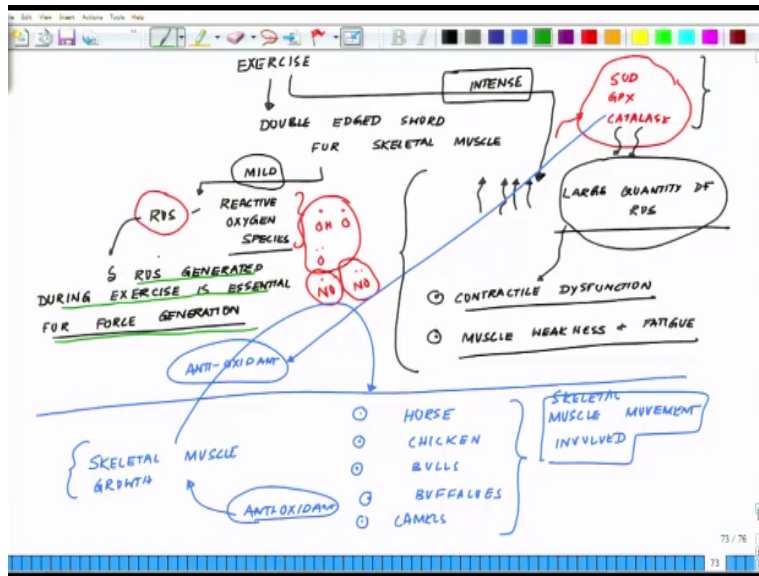 Edit View Insert Actions Tools Help
EXERCISE
INTENSE
SOD
GPX
CATALASE
DOUBLE EDGED SWORD
FUR SKELETAL MUSCLE
MILD
ROS
REACTIVE
OXYGEN
SPECIES
OH O
O
NO NO
LARGE QUANTITY OF
ROS
ROS GENERATED
DURING EXERCISE IS ESSENTIAL
FOR FORCE GENERATION
CONTRACTILE DYSFUNCTION
MUSCLE WEAKNESS + FATIGUE
ANTI-OXIDANT
SKELETAL MUSCLE
GROWTH
ANTIOXIDANT
HORSE
CHICKEN
BULLS
BUFFALOES
CAMELS
SKELETAL
MUSCLE MOVEMENT
INVOLVED
73 / 76
73